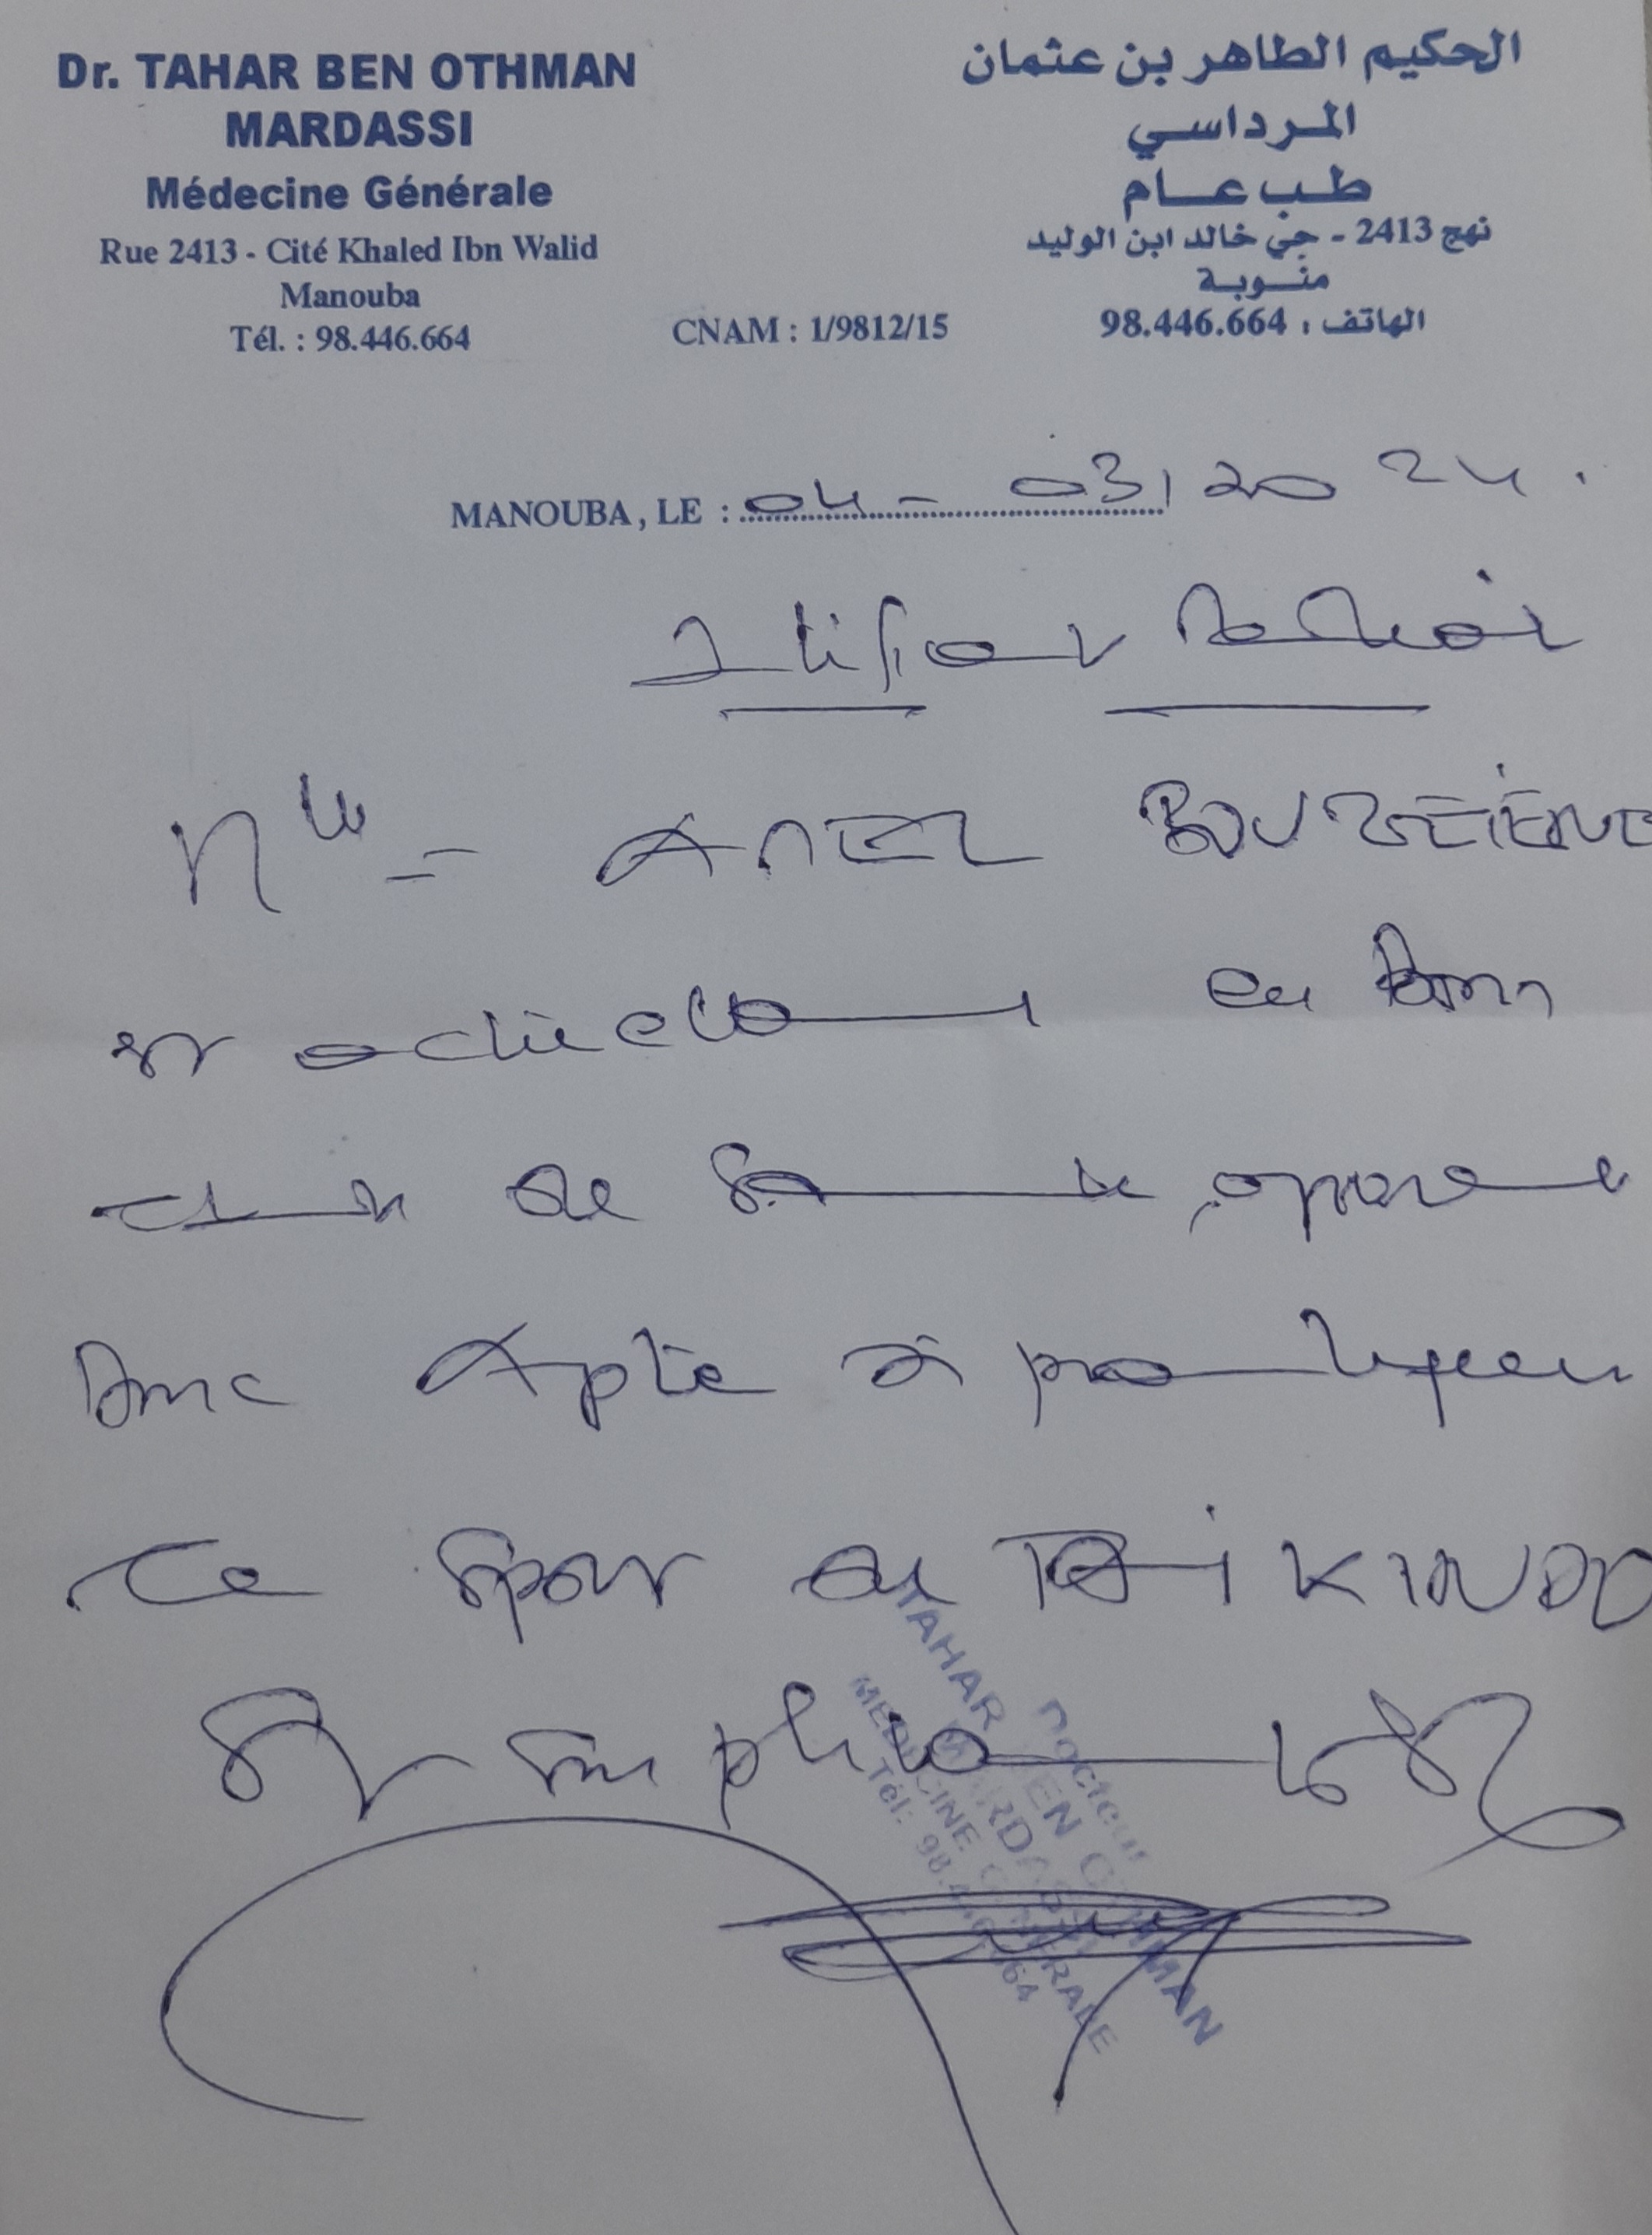 Dr. TAHAR BEN OTHMAN
MARDASSI
Médecine Générale
Rue 2413 - Cité Khaled Ibn Walid
Manouba
Tél. : 98.446.664
CNAM : 1/9812/15
الحكيم الطاهر بن عثمان
المرداسي
طب عام
نهج 2413 - حي خالد ابن الوليد
منوبة
الهاتف : 98.446.664
MANOUBA, LE : 04 - 03 / 2024.
Mlle = AMEL BOUZEIENE
est actuellement en bon
état de santé apparent
Donc Apte à pratiquer
le sport de TAIKINDO
Docteur
TAHAR BEN OTHMAN
MARDASSI
MEDECINE GENERALE
Tél: 98.446.664